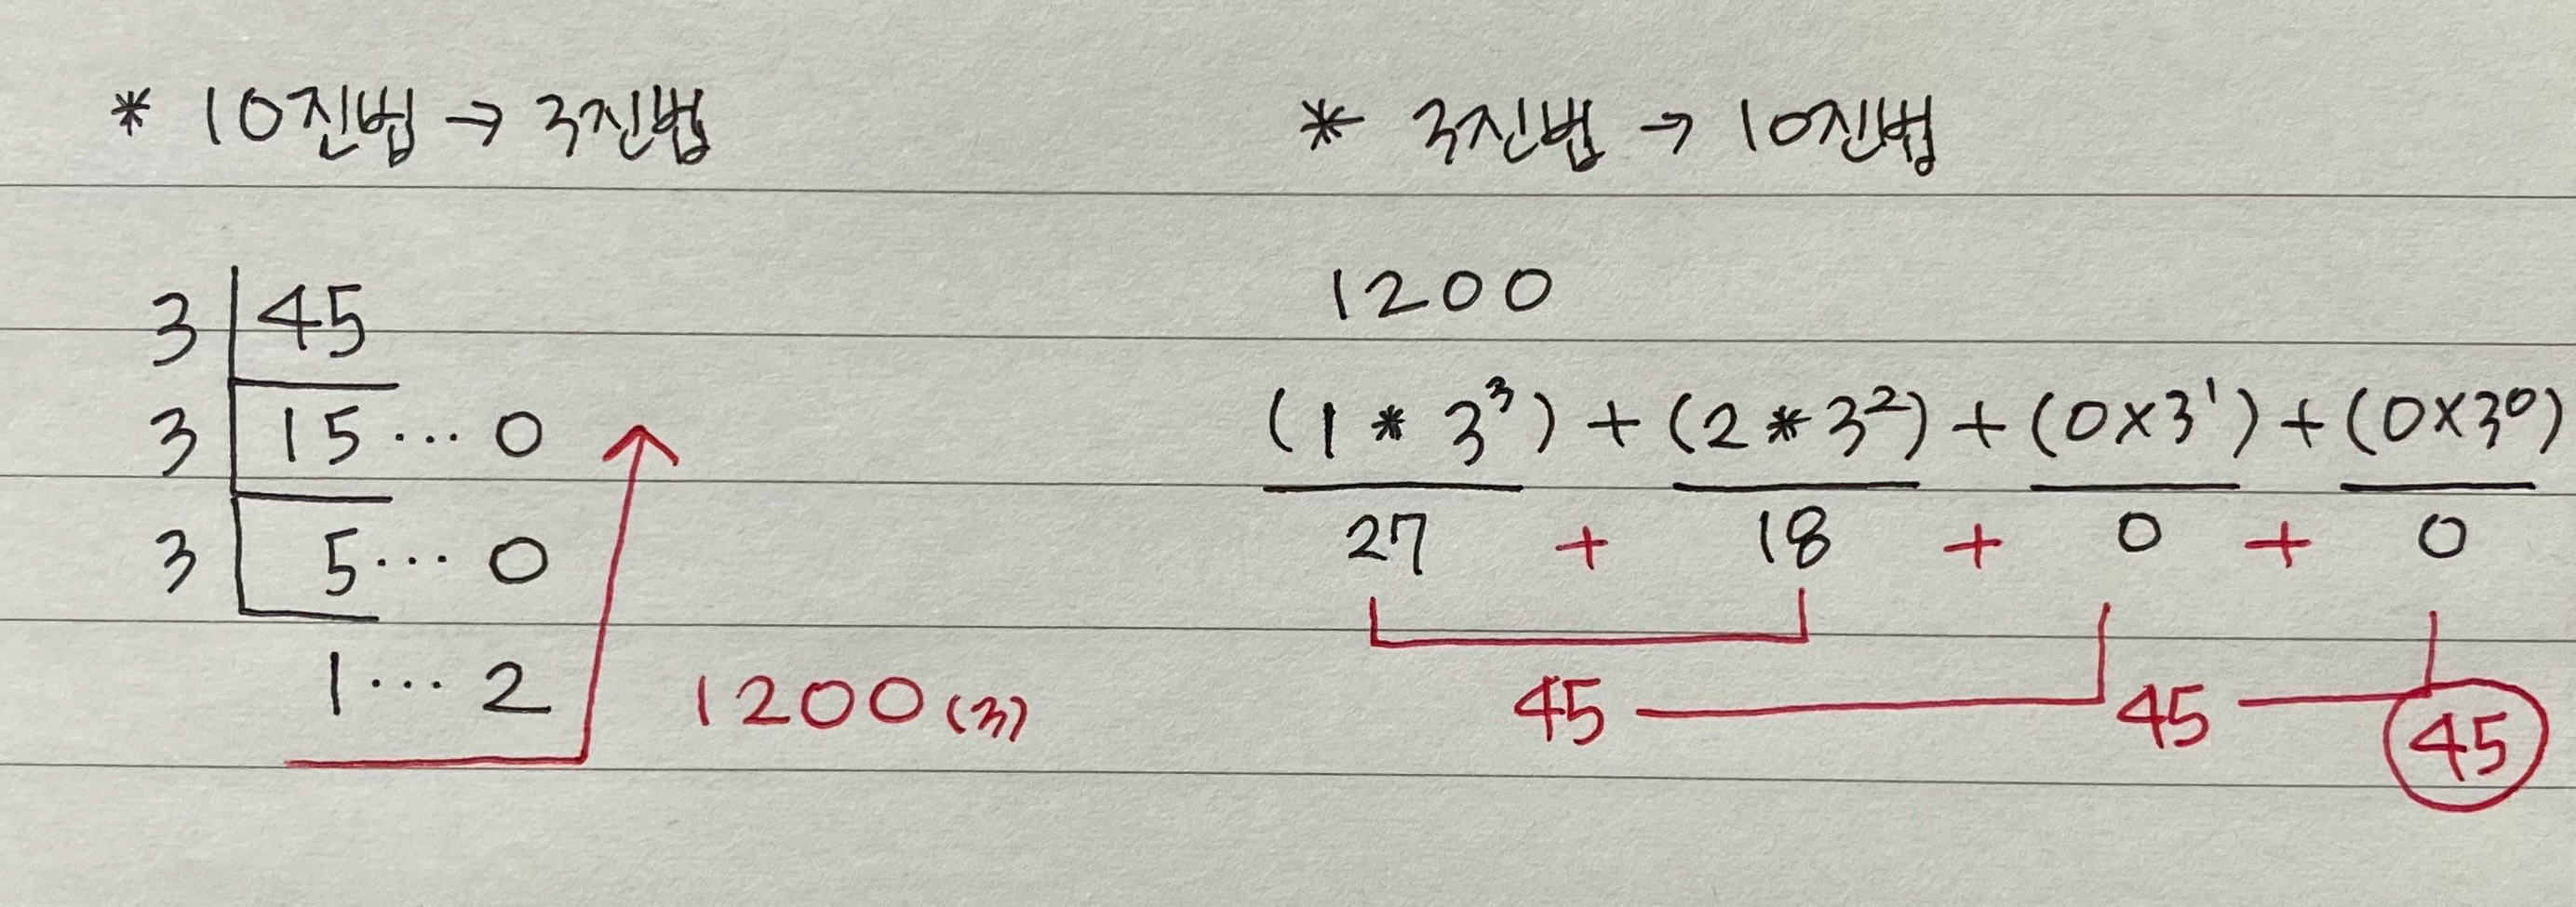 * 10진법 → 3진법
3 45
3 15 ... 0
3 5 ... 0
1 ... 2
1200(3)
* 3진법 → 10진법
1200
(1 * 3³) + (2 * 3²) + (0×3¹) + (0×3⁰)
27 + 18 + 0 + 0
45 45 45